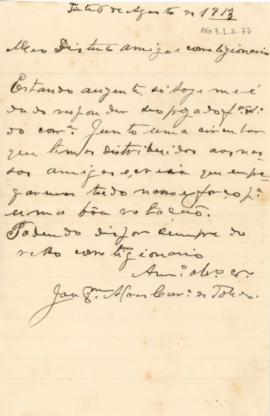 Tatuí 6 de Agosto de 1913
AG 3.1.2.77
Meu Distincto amigo e correligionario
Estando auzente, só hoje me é
dado responder seo prezado fº. 31
do corre. Junto uma circular
que temos distribuidos aos nos-
sos amigos, e creia que empre
garemos todo nosso esforço pª.
uma bôa votação.
Podendo dispor sempre do
velho correligionario
Amº. obrº. cr.
Joaqm.
de Toledo